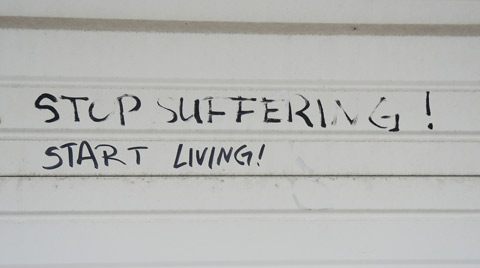 STOP SUFFERING!
START LIVING!